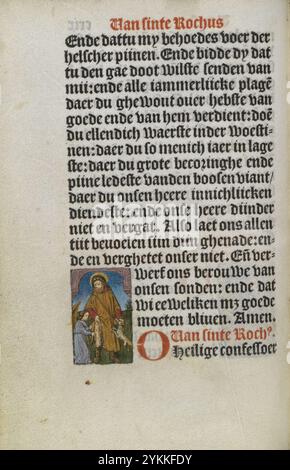 Uan sinte Rochus
Ende dattu my behoedes voer der
helscher piinen. Ende bidde dy dat
tu den gāe doot wilste senden van
mii: ende alle iammerliicke plagē
daer du ghewout ouer hebste van
goede ende van hem verdient: doē
du ellendich waerste inder woesti-
nen: daer du so menich iaer in lage
ste: daer du grote becoringhe ende
piine ledeste vanden boosen viant/
daer du onsen heere innichliicken
dien deste: ende onse heere diinder
niet en vergat. Also laet ons allen
tiit beuoelen iin diin ghenade: en-
de en verghetet onser niet. Eñ ver-
werf ons berouwe van
onsen sonden: ende dat
wi eeweliken mz goede
moeten bliuen. Amen.
Uan sinte Rochꝰ.
O Heilige confessoer
alamy
Image ID: 2YKKFDY
www.alamy.com